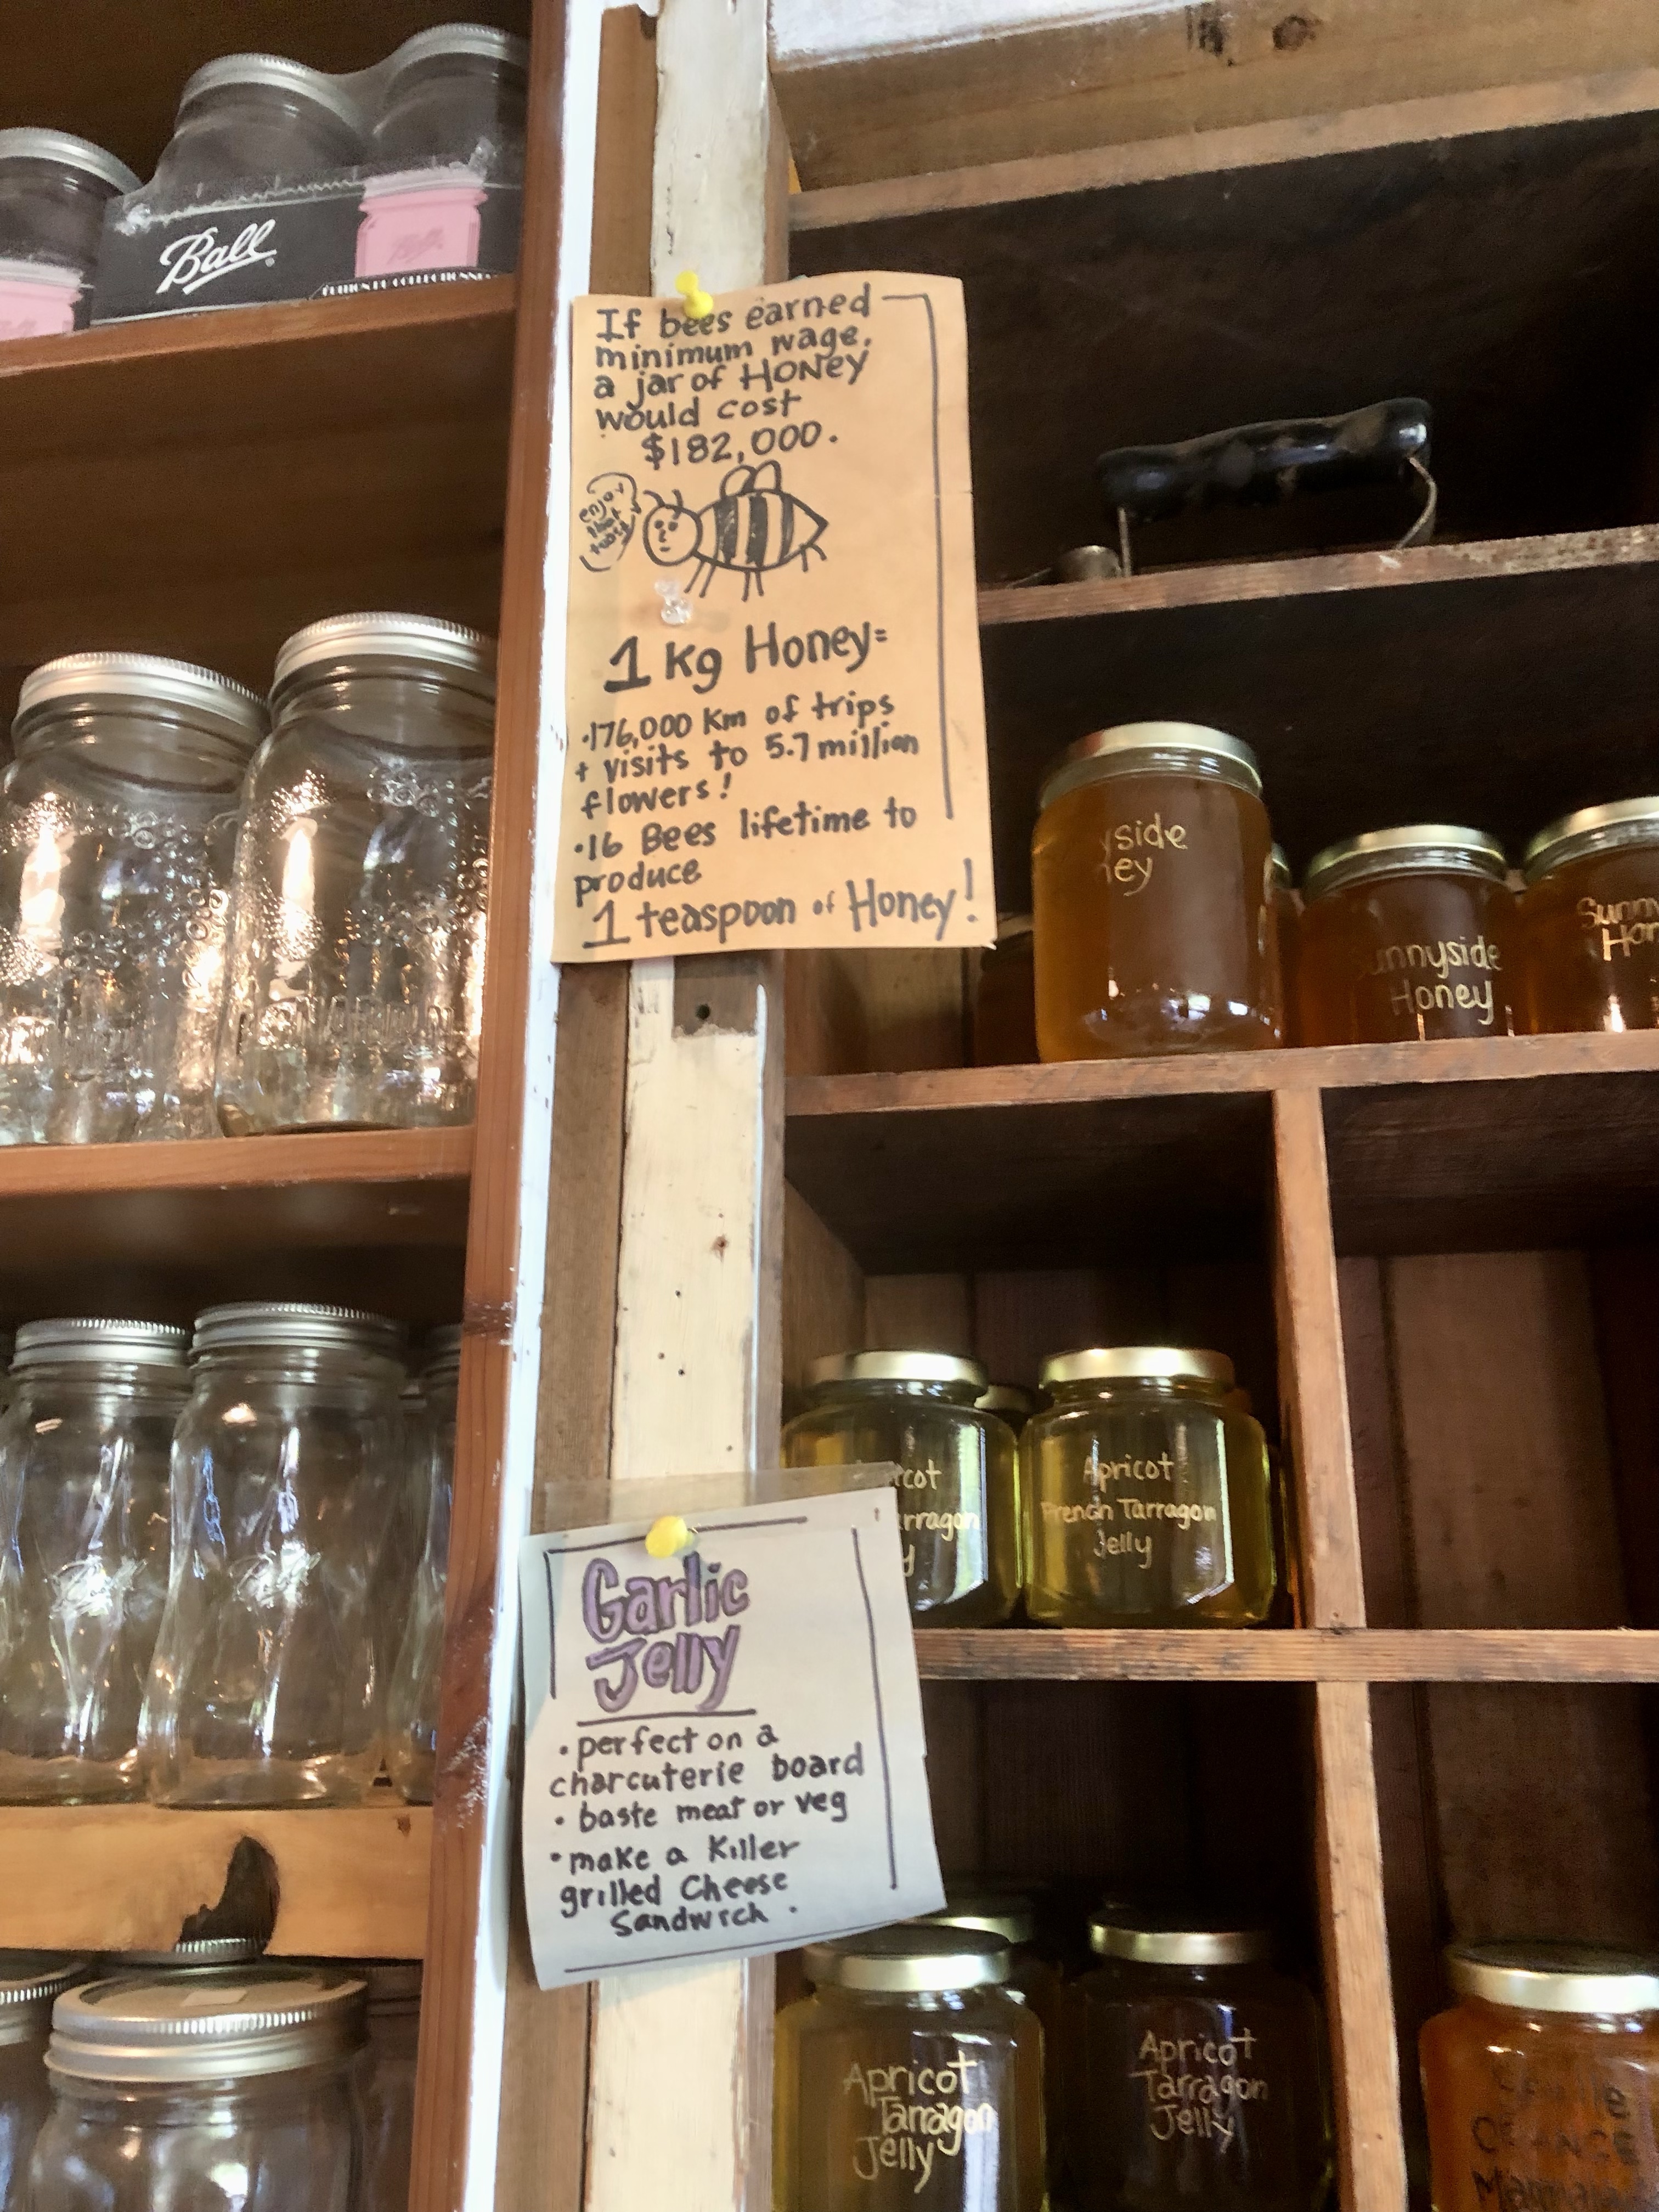 Ball
If bees earned
minimum wage,
a jar of HONEY
would cost
$182,000.
enjoy
that
toast
1 Kg Honey=
·176,000 Km of trips
+ visits to 5.7 million
flowers!
·16 Bees lifetime to
produce
1 teaspoon of Honey!
yside
ney
unnyside
Honey
Sunny
Hon
cot
arragon
y
Apricot
French Tarragon
Jelly
Garlic
Jelly
· perfect on a
charcuterie board
· baste meat or veg
· make a Killer
grilled Cheese
Sandwich.
Apricot
Tarragon
Jelly
Apricot
Tarragon
Jelly
ORANGE